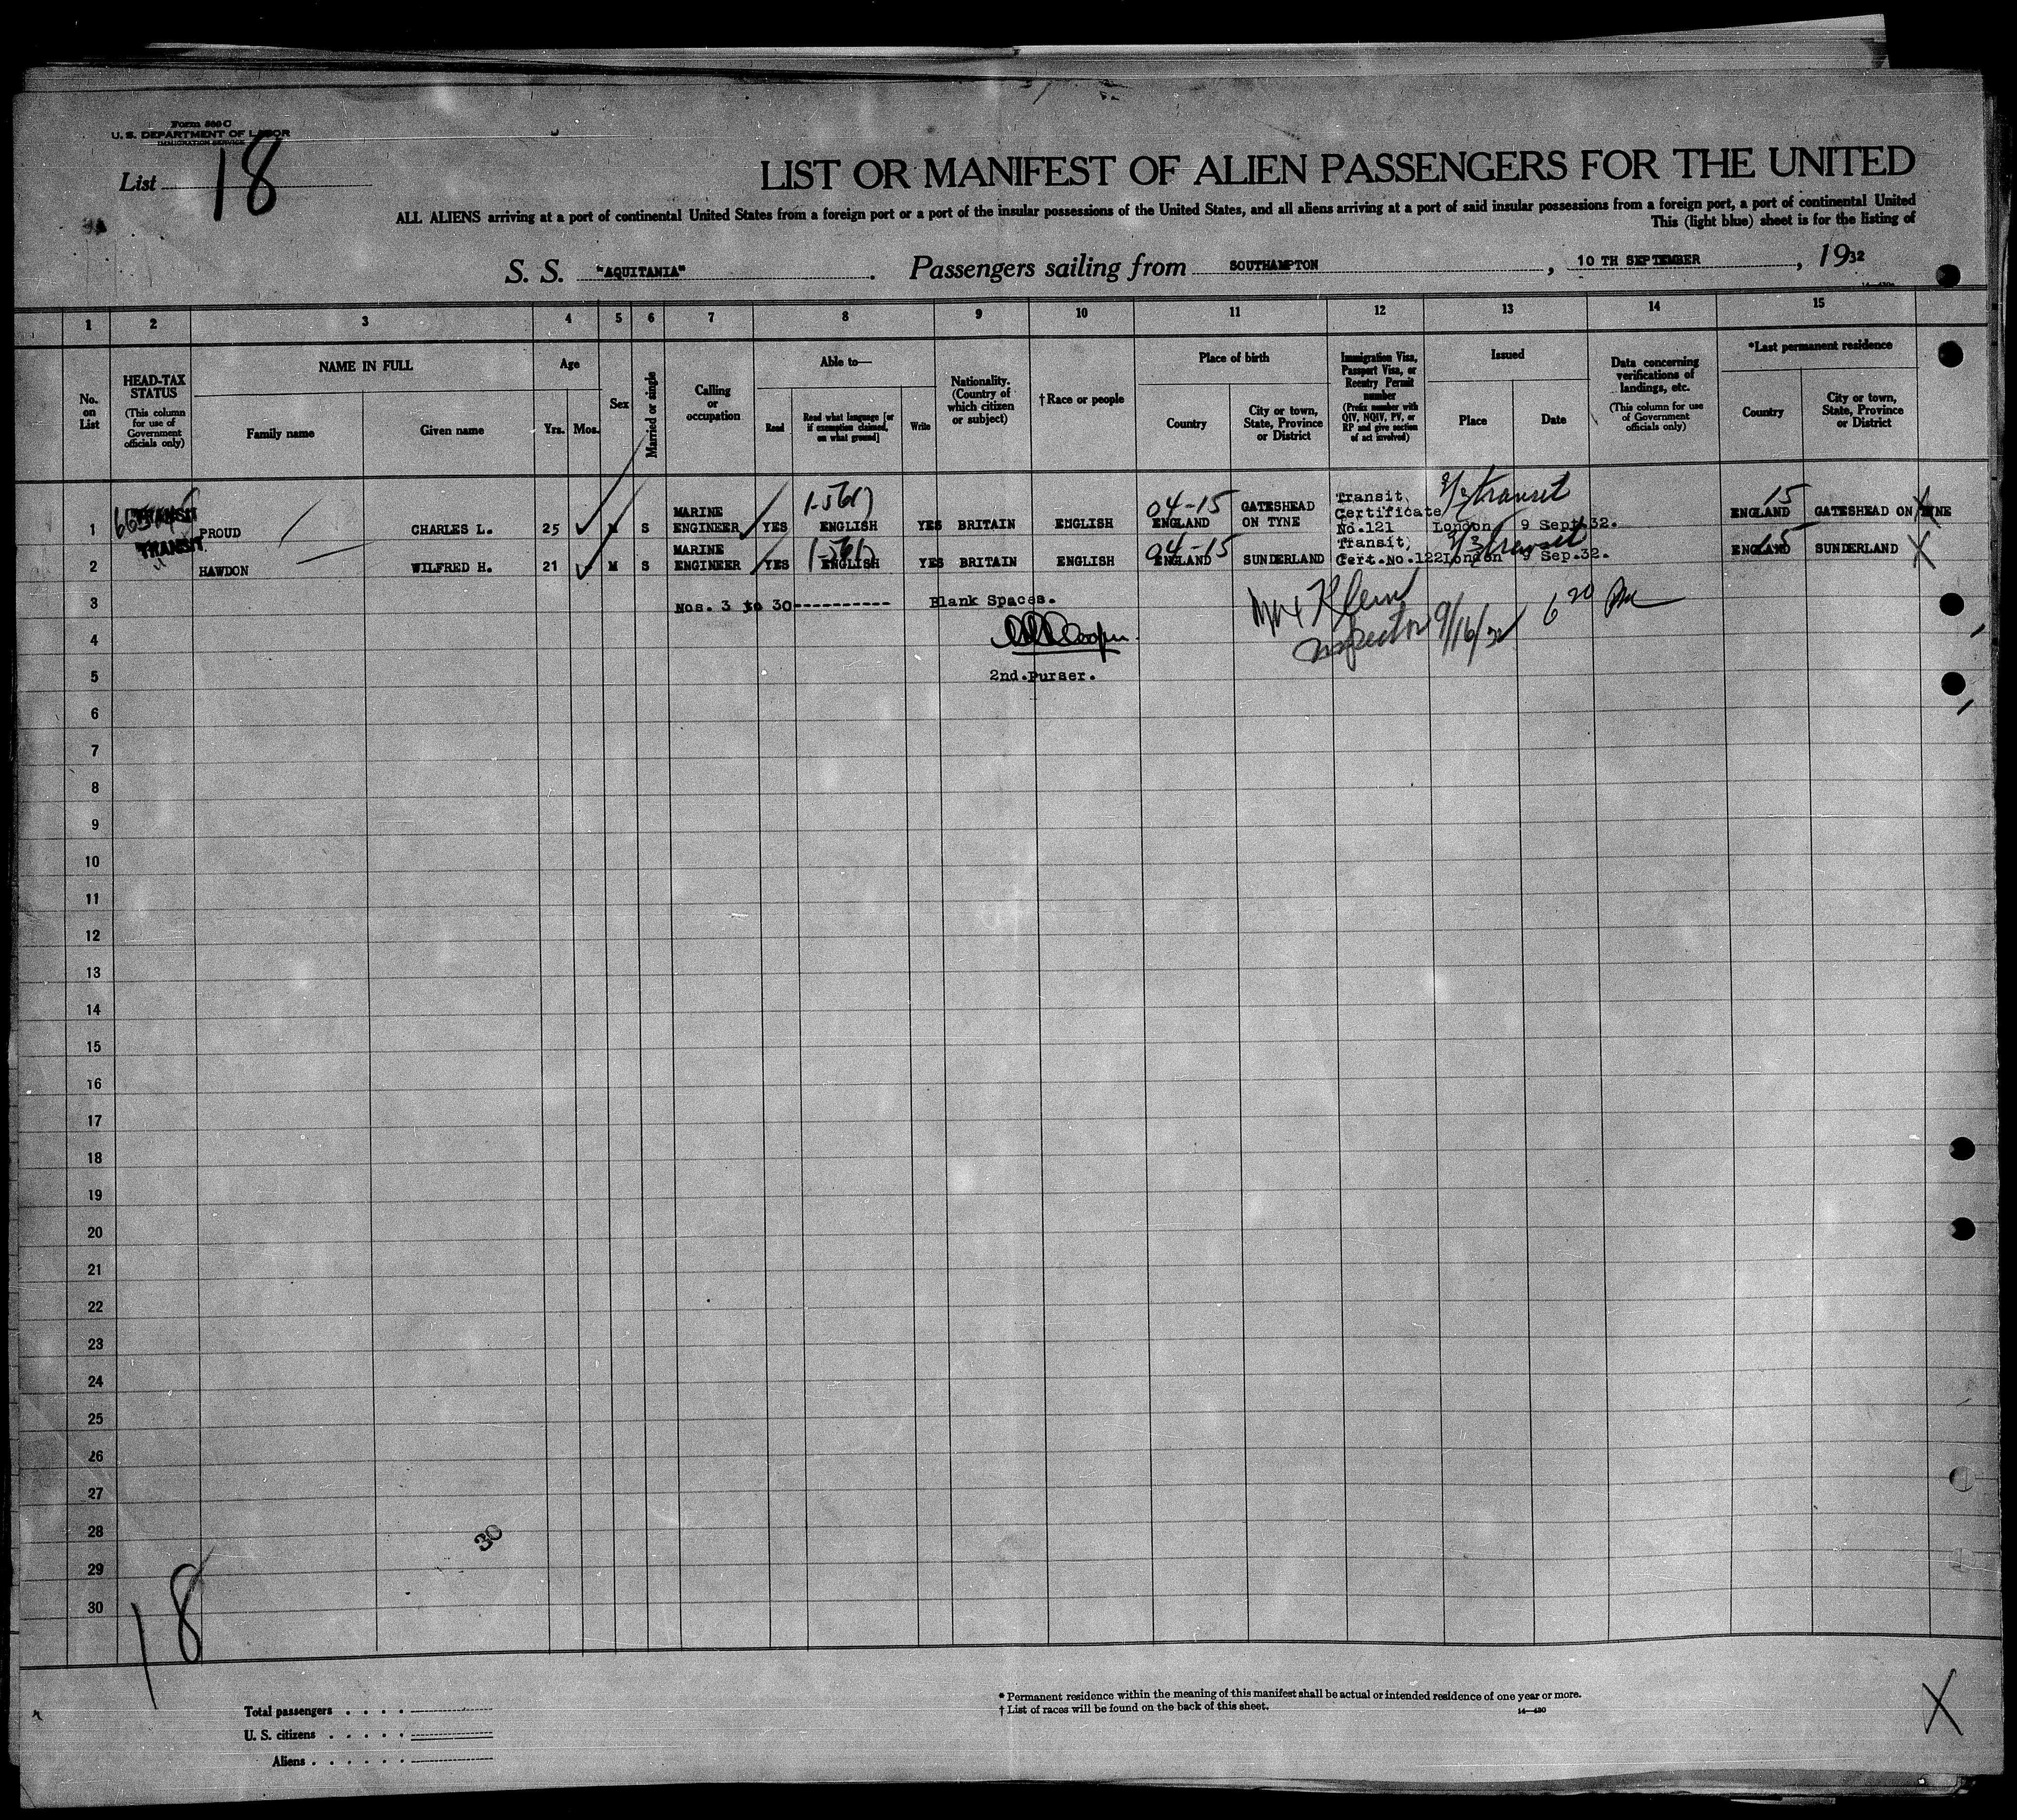 Form 500 C
U. S. DEPARTMENT OF LABOR
IMMIGRATION SERVICE
List 18
LIST OR MANIFEST OF ALIEN PASSENGERS FOR THE UNITED
ALL ALIENS arriving at a port of continental United States from a foreign port or a port of the insular possessions of the United States, and all aliens arriving at a port of said insular possessions from a foreign port, a port of continental United
This (light blue) sheet is for the listing of
S. S. "AQUITANIA". Passengers sailing from SOUTHAMPTON, 10 TH SEPTEMBER, 1932
1 2 3 4 5 6 7 8 9 10 11 12 13 14 15
No. on List
HEAD-TAX STATUS
(This column for use of Government officials only)
NAME IN FULL
Family name
Given name
Age
Yrs. Mos.
Sex
Married or single
Calling or occupation
Able to—
Read
Read what language [or if exemption claimed, on what ground]
Write
Nationality. (Country of which citizen or subject)
†Race or people
Place of birth
Country
City or town, State, Province or District
Immigration Visa, Passport Visa, or Reentry Permit number
(Prefix number with QIV, NQIV, PV, or RP and give section of act involved)
Issued
Place
Date
Data concerning verifications of landings, etc.
(This column for use of Government officials only)
*Last permanent residence
Country
City or town, State, Province or District
1 TRANSIT PROUD CHARLES L. 25 M S MARINE ENGINEER YES ENGLISH YES BRITAIN ENGLISH 04-15 ENGLAND GATESHEAD ON TYNE Transit Certificate No.121 London 9 Sept.32. transit 15 ENGLAND GATESHEAD ON TYNE X
2 TRANSIT HAWDON WILFRED H. 21 M S MARINE ENGINEER YES ENGLISH YES BRITAIN ENGLISH 04-15 ENGLAND SUNDERLAND Transit Cert.No.122 London 9 Sep.32. transit 15 ENGLAND SUNDERLAND X
3 Nos. 3 to 30---------- Blank Spaces. Klein 6 20 PM
4 Inspector 9/16/32
5 2nd.Purser.
6
7
8
9
10
11
12
13
14
15
16
17
18
19
20
21
22
23
24
25
26
27
28 30
29
30
18
Total passengers . . . .
U. S. citizens . . . . .
Aliens . . . . . .
* Permanent residence within the meaning of this manifest shall be actual or intended residence of one year or more.
† List of races will be found on the back of this sheet.
14—430
X